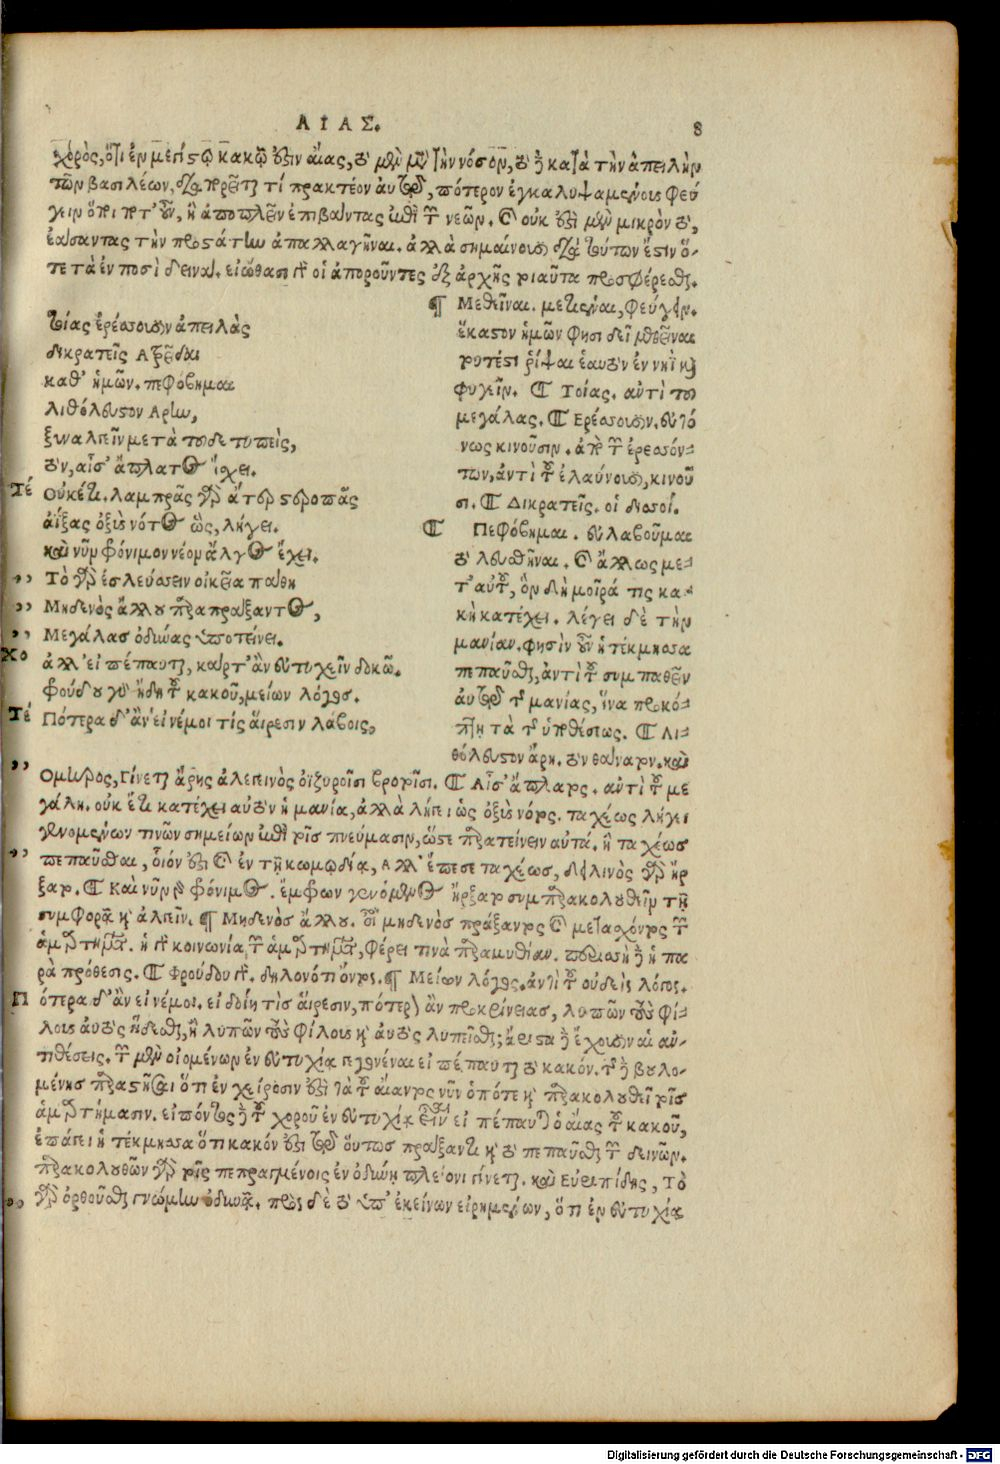 ΑΙΑΣ. 8
χορὸς, ὅτι ἐν μεγίστῳ κακῷ ἐστιν αἴας, οὐ μὲν τὴν νόσον, οὐ δὲ κατὰ τὴν ἀπειλὴν
τῶν βασιλέων, τί πρακτέον αὐτοῖς, πότερον ἐγκαλυψαμένους φεύ
γειν ἢ ἀποπλεῖν ἐπιβάντας ἐπὶ τῶν νεῶν. οὐκ ἔστι μὲν μικρὸν
ἐάσαντας τὴν ἀπαλλαγῆναι. ἀλλὰ σημαίνουσι τούτων ἔστιν ὅ-
τε τὰ ἐν ποσὶ δεινά. εἰώθασι γὰρ οἱ ἀποροῦντες ἐξ ἀρχῆς τοιαῦτα προσφέρεσθαι.
τοίας ἐρέσσουσιν ἀπειλὰς
δικρατεῖς Ατρεῖδαι
καθ' ἡμῶν. πεφόβημαι
λιθόλευστον Αρην,
ξυναλγεῖν μετὰ τοῦδε τυπεὶς,
τὸν, αἶσ' ἄπλατος ἴσχει.
Τέ Οὐκέτι. λαμπρᾶς γὰρ ἄτερ στεροπᾶς
ἀΐξας ὀξὺς νότος ὣς, λήγει.
καὶ νῦν φρόνιμον νέον ἄλγος ἔχει.
,, Τὸ γὰρ ἐσλεύσσειν οἰκεῖα πάθη
,, Μηδενὸς ἄλλου παραπράξαντος,
,, Μεγάλας ὀδύνας ὑποτείνει.
Χο ἀλλ' εἰ πέπαυται, κάρτ' ἂν εὐτυχεῖν δοκῶ.
φρούδου γὰρ ἤδη τοῦ κακοῦ, μείων λόγος.
Τέ Πότερα δ' ἂν εἰ νέμοι τίς αἵρεσιν λάβοις,
¶ Μεθεῖναι. μετιέναι, φεύγειν.
ἕκαστον ἡμῶν φησι δεῖ μεθεῖναι
τουτέστι ῥίψαι ἑαυτὸν ἐν νηὶ καὶ
φυγεῖν. ¶ Τοίας. αὐτὶ τοῦ
μεγάλας. ¶ Ερέσσουσιν. εὐτό
νως κινοῦσιν. ἀπὸ τῶν ἐρεσσόν-
των, ἀντὶ τοῦ ἐλαύνουσι, κινοῦ
σι. ¶ Δικρατεῖς. οἱ δισσοί.
¶ Πεφόβημαι. εὐλαβοῦμαι
τὸ λευσθῆναι. καὶ ἄλλως με-
τ' αὐτοῦ, ὃν δὴ μοῖρά τις κα-
κὴ κατέχει. λέγει δὲ τὴν
μανίαν. φησὶν οὖν ἡ τέκμησσα
πεπαῦσθαι, ἀντὶ τοῦ συμπαθεῖν
αὐτὸν τῆς μανίας, ἵνα προκό-
πῃ τὰ τῆς ὑποθέσεως. ¶ Λι-
θόλευστον ἄρη. τὸν θάνατον. καὶ
,, Ομηρος, Γίνεται ἄρης ἀλεγεινὸς ὀϊζυροῖσι βροτοῖσι. ¶ Αἶσ' ἄπλατος. αντὶ τοῦ με
γάλη. οὐκ ἔτι κατέχει αὐτὸν ἡ μανία, ἀλλὰ λήγει ὡς ὀξὺς νότος. ταχέως λήγει
γενομένων τινῶν σημείων ἐπὶ τοῖς πνεύμασιν, ὥστε παρατείνειν αὐτά. ἢ ταχέως
,, πεπαῦσθαι, οἷόν ἐστι καὶ ἐν τῇ κωμῳδίᾳ, Αλλ' ἔπεσε ταχέως, δειλινὸς γὰρ ἦρ
ξατο. ¶ Καὶ νῦν ὁ φρόνιμος. ἔμφρων γενόμενος ἤρξατο συμπαρακολουθεῖν τῇ
συμφορᾷ καὶ ἀλγεῖν. ¶ Μηδενὸς ἄλλου. οἷον μηδενὸς πράξαντος καὶ μετασχόντος τῶν
ἁμαρτημάτων. ἡ γὰρ κοινωνία τῶν ἁμαρτημάτων, φέρει τινὰ παραμυθίαν. περισσὴ δὲ ἡ πα
ρὰ πρόθεσις. ¶ Φρούδου γὰρ. δηλονότι ὄντος. ¶ Μείων λόγος. ἀντὶ τοῦ οὐδεὶς λόγος.
Π ότερα δ' ἂν εἰ νέμοι. εἰ δοίη τὶς αἵρεσιν, πότερον ἂν προκρίνειας, λυπῶν τοὺς φί-
λους αὐτὸς ἥδεσθαι, ἢ λυπῶν τοὺς φίλους καὶ αὐτὸς λυπεῖσθαι; ἄριστα δὲ ἔχουσιν αἱ αν-
τιθέσεις. τῶν μὲν οἰομένων ἐν εὐτυχίᾳ γεγονέναι εἰ πέπαυται τὸ κακόν. τῆς δὲ βουλο-
μένης παραστῆσαι ὅτι ἐν χείροσίν ἐστι τὰ τοῦ αἴαντος νῦν ὁπότε καὶ παρακολουθεῖ τοῖς
ἁμαρτήμασιν. εἰπόντος δὲ τοῦ χοροῦ ἐν εὐτυχίᾳ εἰ πέπαυται ὁ αἴας τοῦ κακοῦ,
ἐπάγει ἡ τέκμησσα ὅτι κακόν ἐστι τὸ οὕτως πράξαντι καὶ τὸ πεπαῦσθαι τῶν δεινῶν.
παρακολουθῶν γὰρ τοῖς πεπραγμένοις ἐν ὀδύνῃ πλείονι γίνεται. καὶ Εὐριπίδης, Τὸ
,, γὰρ ὀρθοῦσθαι γνώμην ὀδυνᾷ. πρὸς δὲ τὸ ὑπ' ἐκείνων εἰρημένων, ὅτι ἐν εὐτυχίᾳ
Digitalisierung gefördert durch die Deutsche Forschungsgemeinschaft - DFG